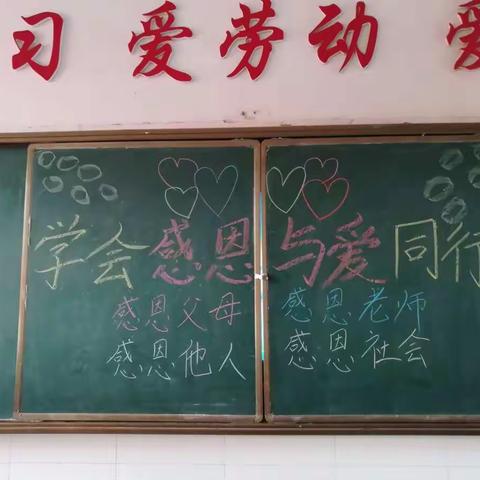 习 爱劳动 爱
学会感恩与爱同行
感恩父母 感恩老师
感恩他人 感恩社会